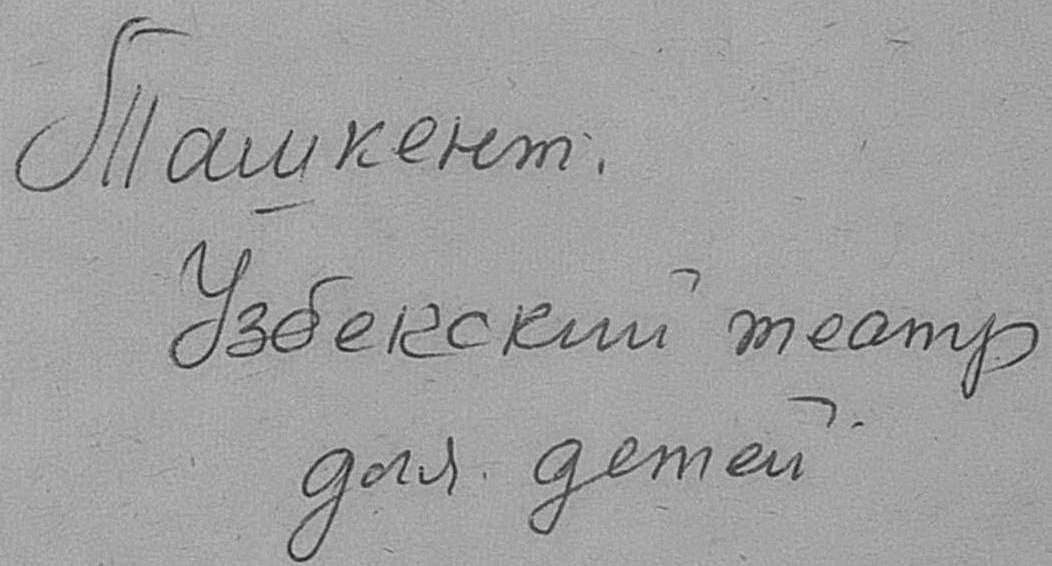 Ташкент.
Узбекский театр
для детей